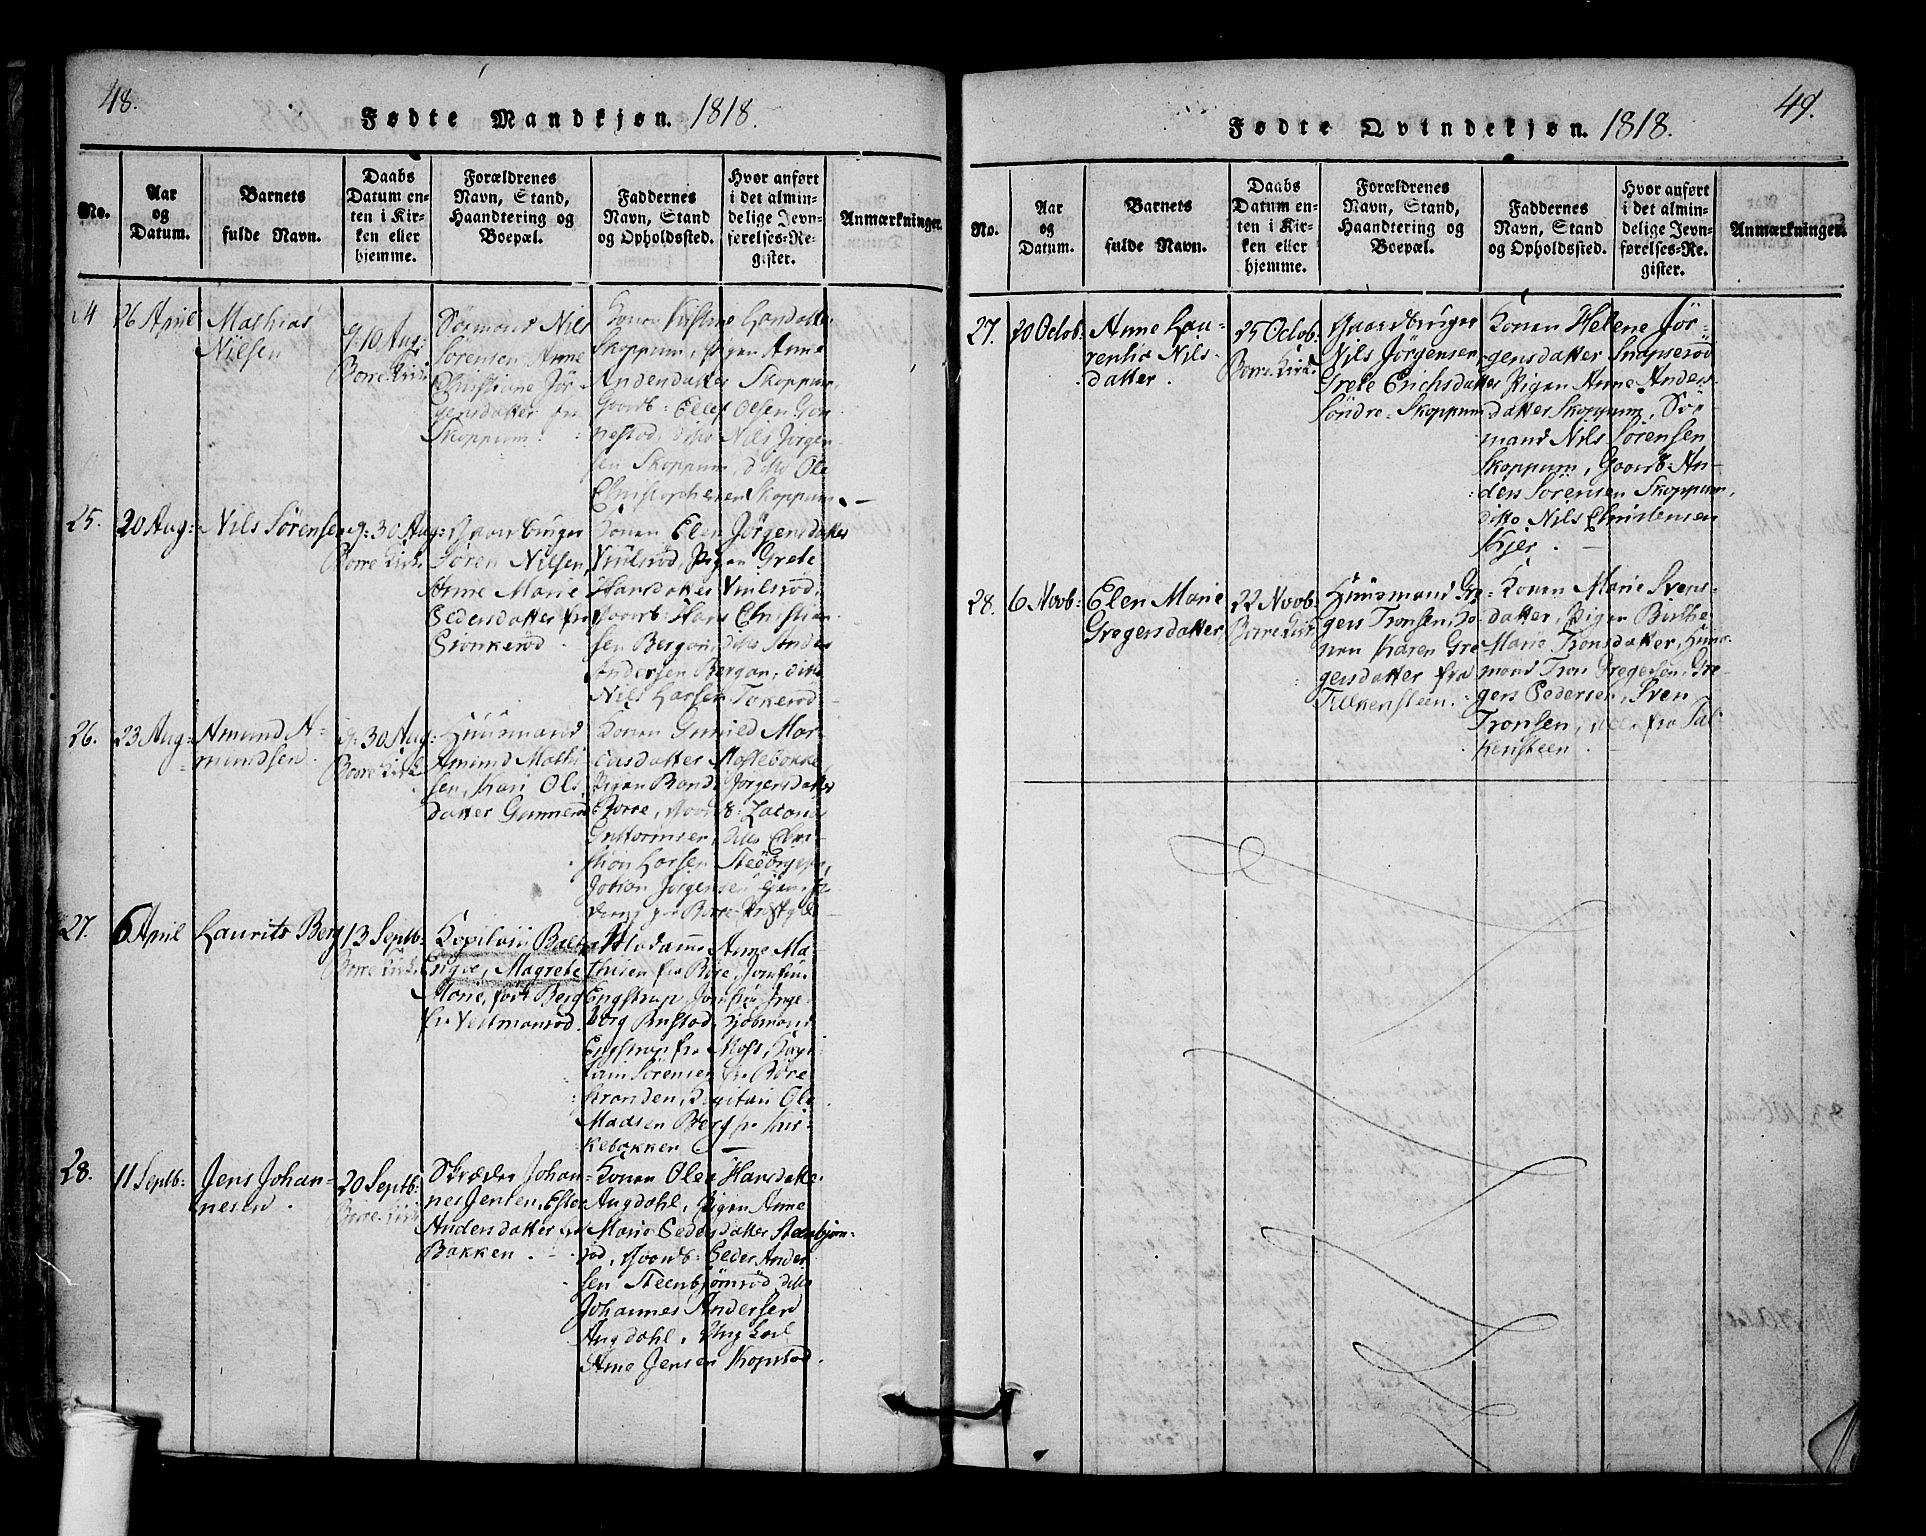 48.
Fødte Mandkjøn. 1818.
No.
Aar
og
Datum.
Barnets
fulde Navn.
Daabs
Datum en-
ten i Kir-
ken eller
hjemme.
Forældrenes
Navn, Stand,
Haandtering og
Boepæl.
Faddernes
Navn, Stand
og Opholdssted.
Hvor anført
i det almin-
delige Jevn-
førelses-Re-
gister.
Anmærkninger.
24
26 April
Mathias
Nilsen
10 Aug:
Borre Kirke
Sömand Nils
Sörensen Anne
Christiane Jör
gensdatter fra
Skoppum.
Konen
Skoppum, Pigen Anne
Andersdatter Skoppum,
Gaardb: Ellef Olsen Gon-
nestad, ditto Nils Jörgen-
sen Skoppum, ditto Ole
Christophersen Skoppum.
25.
20 Aug:
Nils Sörensen
30 Aug:
Borre Kirke
Gaardbruger
Sören Nilsen,
Anne Marie
Pedersdatter fra
Konen Elen Jörgensdatter
Pigen Grete
Hansdatter
Gaardb: Hans Christian-
sen Bergan, ditto Anders
Andersen Bergan, ditto
Nils Larsen Tokeröd
26.
23 Aug:
Amund A-
mundsen.
30 Aug:
Borre Kirke
Huusmand
Amund Mathi-
sen, Kari Ols-
datter
Konen Gunild Mar-
Pigen Jörgensdatter
Borre, Gaardb:
Guttormsen, ditto Chri-
stian Larsen
Jörgensen
27.
6 April
Laurits Berg
13 Septb:
Borre Kirke
Magrete
Marie, föd Berg
fra Vestmanröd.
Madame Anne Ma-
thisen fra Jomfru
Engstrup, Jomfru Inge-
borg
Engstrup fra Moss, Kap-
tain Sörensen fra Borre
stranden, Kapitain Ole
Madsen Berg fra Kir-
kebakken
28.
11 Septb:
Jens Johan-
nesen.
20 Septb:
Borre Kirke
Skræder Johan-
nes Jensen, Ester
Andersdatter
Bakken.
Konen Olea Hansdatter
Augdahl, Pigen Anne
Marie Pedersdatter Steenbjön-
röd, Gaardb: Peder Ander-
sen Steenbjönröd ditto
Johannes Andersen
Augdahl, Ung Karl
Arne Jensen Kopstad.
49.
Fødte Qvindekjøn. 1818.
No.
Aar
og
Datum.
Barnets
fulde Navn.
Daabs
Datum en-
ten i Kir-
ken eller
hjemme.
Forældrenes
Navn, Stand,
Haandtering og
Boepæl.
Faddernes
Navn, Stand
og Opholdssted.
Hvor anført
i det almin-
delige Jevn-
førelses-Re-
gister.
Anmærkninger.
27.
20 Octob:
Anne Lau-
rentia Nils-
datter.
25 Octob.
Borre Kirke
Gaardbruger
Nils Jörgensen
Grete Erichsdatter
Söndre-Skoppum
Konen Helene Jör-
gensdatter Snapseröd
Pigen Anne Anders-
datter Skoppum, Sö-
mand Nils Sörensen
Skoppum, Gaardb: An-
ders Sörensen Skoppum,
ditto Nils Christensen
Kjer.
28.
6 Novb:
Elen Marie
Gregersdatter
22 Novb:
Borre Kirke
Huusmand Gre-
gers Tronsen, Ko-
nen Karen Gre-
gersdatter fra
Falkensteen.
Konen Marie Svens-
datter, Pigen Berthe
Marie Tronsdatter, Huus-
mand Tron Gregersen, Gre-
gers Pedersen, Sven
Tronsen, alle fra Fal-
kensteen.